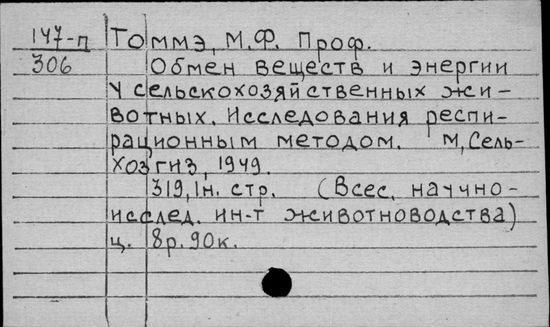 147-п Томмэ, М.Ф. Проф.
306 Обмен веществ и энергии
у сельскохозяйственных жи-
вотных. Исследования респи-
рационным методом. М, Сель-
хозгиз, 1949.
319, 1н. стр. (Всес. научно-
исслед. ин-т животноводства)
ц. 8р. 90к.